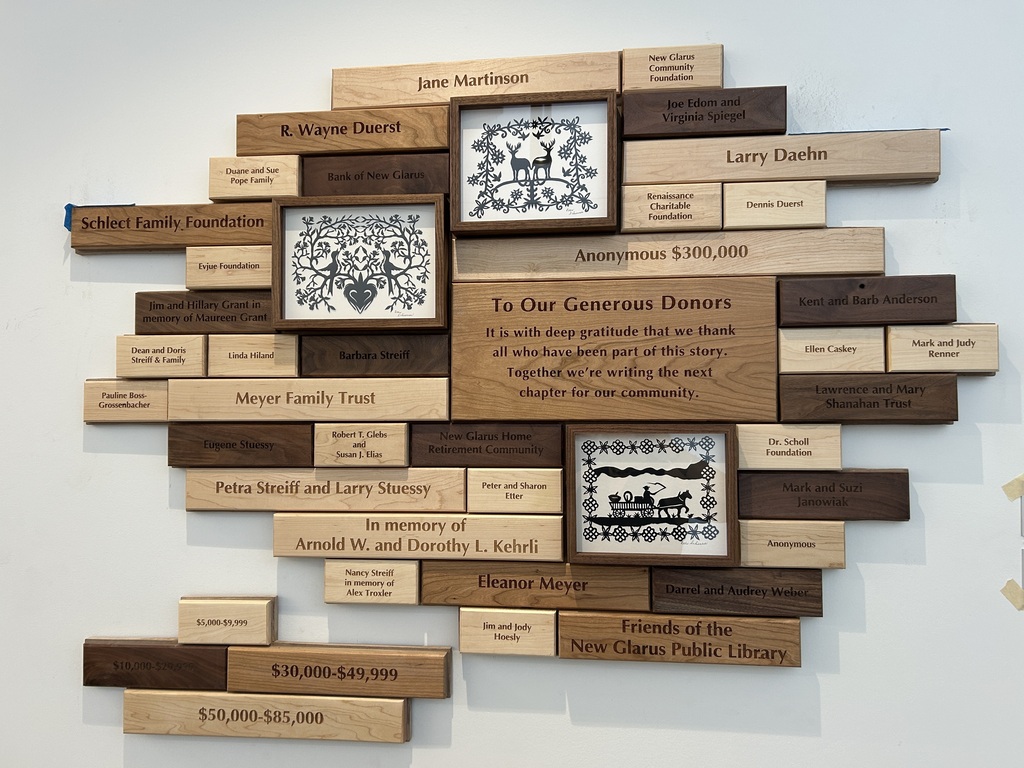 Jane Martinson
New Glarus
Community
Foundation
Joe Edom and
Virginia Spiegel
R. Wayne Duerst
Larry Daehn
Duane and Sue
Pope Family
Bank of New Glarus
Renaissance
Charitable
Foundation
Dennis Duerst
Schlect Family Foundation
Anonymous $300,000
Evjue Foundation
Jim and Hillary Grant in
memory of Maureen Grant
To Our Generous Donors
It is with deep gratitude that we thank
all who have been part of this story.
Together we're writing the next
chapter for our community.
Kent and Barb Anderson
Dean and Doris
Streiff & Family
Linda Hiland
Barbara Streiff
Ellen Caskey
Mark and Judy
Renner
Pauline Boss-
Grossenbacher
Meyer Family Trust
Lawrence and Mary
Shanahan Trust
Eugene Stuessy
Robert T. Glebs
and
Susan J. Elias
New Glarus Home
Retirement Community
Dr. Scholl
Foundation
Petra Streiff and Larry Stuessy
Peter and Sharon
Etter
Mark and Suzi
Janowiak
In memory of
Arnold W. and Dorothy L. Kehrli
Anonymous
Nancy Streiff
in memory of
Alex Troxler
Eleanor Meyer
Darrel and Audrey Weber
Jim and Jody
Hoesly
Friends of the
New Glarus Public Library
$5,000-$9,999
$10,000-$29,999
$30,000-$49,999
$50,000-$85,000